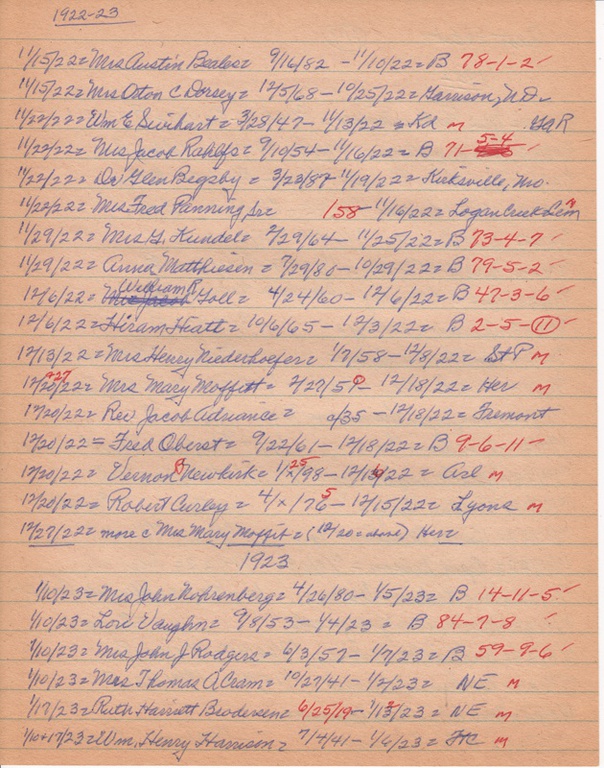 1922-23
11/15/22 = Mrs Austin Beales = 9/16/82 - 11/10/22 = B 78-1-2 ✓
11/15/22 = Mrs Orton C Dorsey = 12/5/68 - 10/25/22 = Garrison, N.D.
11/22/22 = Wm E. Swihart = 3/28/47 - 11/13/22 = Kd M GAR
11/22/22 = Mrs Jacob Rahlfs = 9/10/54 - 11/16/22 = B 71-5-4 ✓
11/22/22 = Dr Glen Begsby = 3/23/87 11/19/22 = Kirksville, Mo.
11/22/22 = Mrs Fred Panning Sr = 158 11/16/22 = Logan Creek Cem M
11/29/22 = Mrs G. Kundel = 2/29/64 - 11/25/22 = B 73-4-7 ✓
11/29/22 = Anna Matthiesen = 7/29/80 - 10/29/22 = B 79-5-2 ✓
12/6/22 = William R Goll = 4/24/60 - 12/6/22 = B 47-3-6 ✓
12/6/22 = Hiram Hiatt = 10/6/65 - 12/3/22 = B 2-5-11 ✓
12/13/22 = Mrs Henry Niederhoefer = 1/7/58 - 12/8/22 = St P M
12/20/22 +27 = Mrs Mary Moffitt = 2/27/5 - 12/18/22 = Her M
12/20/22 = Rev Jacob Adriance = c/35 - 12/18/22 = Fremont
12/20/22 = Fred Oberst = 9/22/61 - 12/18/22 = B 9-6-11 ✓
12/20/22 = Vernon Newkirk = 1/25/98 - 12/1/22 = Arl M
12/20/22 = Robert Curley = 4/x/76 5 - 12/15/22 = Lyons M
12/27/22 = more c Mrs Mary Moffit = (12/20 = above) Her
1923
1/10/23 = Mrs John Nohrenberg = 4/26/80 - 1/5/23 = B 14-11-5 ✓
1/10/23 = Lori Vaughn = 9/8/53 - 1/4/23 = B 84-7-8 ✓
1/10/23 = Mrs John J Rodgers = 6/3/57 - 1/7/23 = B 59-9-6 ✓
1/10/23 = Mrs Thomas A Cram = 10/27/41 - 1/2/23 = NE M
1/17/23 = Ruth Harriett Brodersen = 6/25/19 - 1/13/23 = NE M
1/10+17/23 = Wm. Henry Harrison = 7/4/41 - 1/6/23 = M